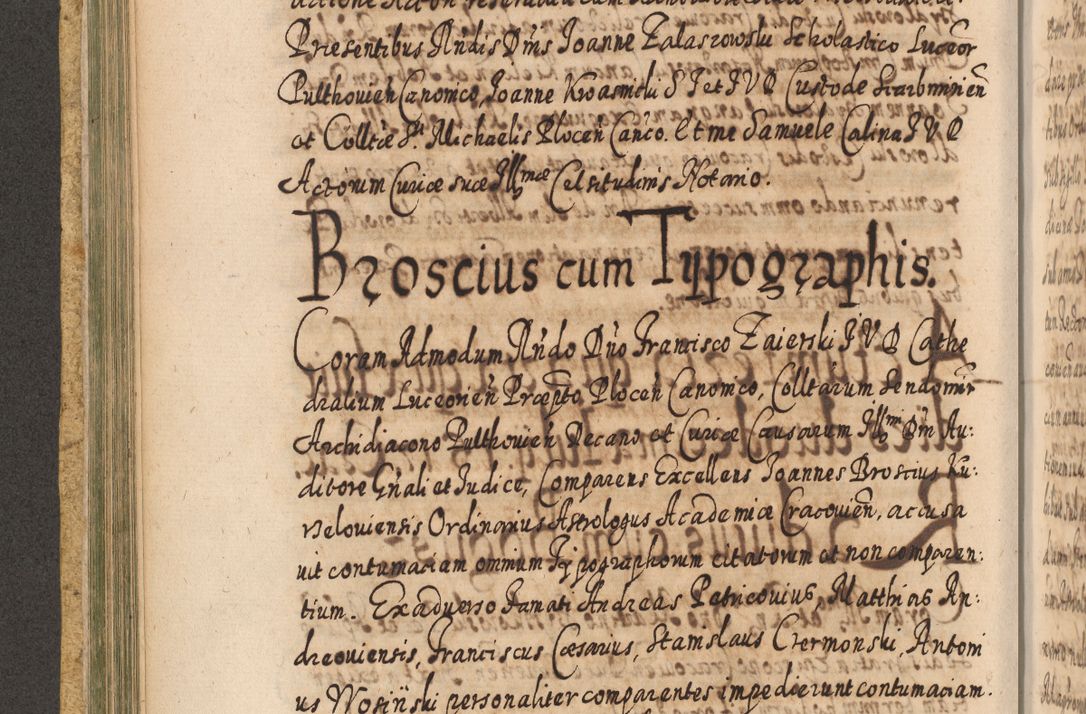 Præsentibus Rn̄dis Dn̄is Joanne Zalaszowski Scholastico Luceōr
Pulthouien̄ Canonico, Joanne Kwasnicki S T et I V D Custode Skarbmirien̄
et Colltæ S. Michaelis Plocen̄ Can̄co. Et me Samuele Calina I V D
Actorum Curiæ suæ Ill^mæ Celsitudinis Notario.
Broscius cum Typographis.
Coram Admodum Rn̄do Dn̄o Francisco Zaierski I V D Cathe
dralium Luceorien̄ Præpto Plocen̄ Canonico, Colltarum Sendomir̄
Archidiacono Pulthouien̄ Decano et Curiæ Causarum Ill^mi Dn̄i Au:
ditore Gn̄ali et Judice, Comparens Excellens Joannes Broscius Ku:
rzelouiensis Ordinarius Astrologus Academiæ Cracouien̄, accusa
uit contumaciam omnium Typographorum citatorum et non comparen:
tium. Exaduerso Famati Andreas Petricouius, Matthias An:
dreouiensis, Franciscus Cæsarius, Stanislaus Czermonski, Antoni
us Wosinski personaliter comparentes impedierunt contumaciam.